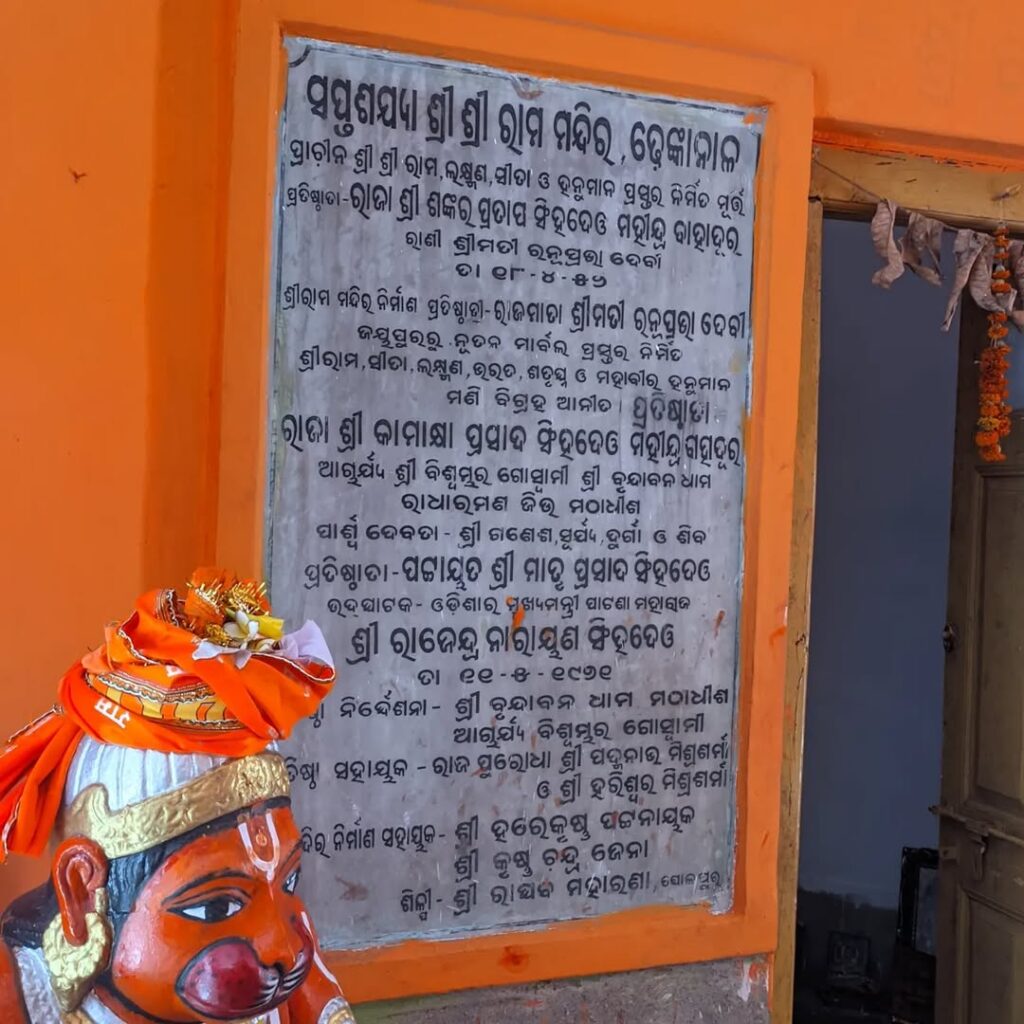 ସପ୍ତଶଯ୍ୟା ଶ୍ରୀ ଶ୍ରୀ ରାମ ମନ୍ଦିର, ଢ଼େଙ୍କାନାଳ
ପ୍ରାଚୀନ ଶ୍ରୀ ଶ୍ରୀ ରାମ, ଲକ୍ଷ୍ମଣ, ସୀତା ଓ ହନୁମାନ ପ୍ରସ୍ତର ନିର୍ମିତ ମୂର୍ତ୍ତି
ପ୍ରତିଷ୍ଠାତା-ରାଜା ଶ୍ରୀ ଶଙ୍କର ପ୍ରତାପ ସିଂହଦେଓ ମହୀନ୍ଦ୍ର ବାହାଦୂର
ରାଣୀ ଶ୍ରୀମତୀ ରତ୍ନପ୍ରଭା ଦେବୀ
ତା ୧୮-୪-୫୬
ଶ୍ରୀରାମ ମନ୍ଦିର ନିର୍ମାଣ ପ୍ରତିଷ୍ଠାତ୍ରୀ-ରାଜମାତା ଶ୍ରୀମତୀ ରତ୍ନପ୍ରଭା ଦେବୀ
ଜୟପୁରରୁ ନୂତନ ମାର୍ବଲ ପ୍ରସ୍ତର ନିର୍ମିତ
ଶ୍ରୀରାମ, ସୀତା, ଲକ୍ଷ୍ମଣ, ଭରତ, ଶତୃଘ୍ନ ଓ ମହାବୀର ହନୁମାନ
ମଣି ବିଗ୍ରହ ଆନୀତ। ପ୍ରତିଷ୍ଠାତା
ରାଜା ଶ୍ରୀ କାମାକ୍ଷା ପ୍ରସାଦ ସିଂହଦେଓ ମହୀନ୍ଦ୍ର ବାହାଦୂର
ଆଚାର୍ଯ୍ୟ ଶ୍ରୀ ବିଶ୍ୱମ୍ଭର ଗୋସ୍ୱାମୀ ଶ୍ରୀ ବୃନ୍ଦାବନ ଧାମ
ରାଧାରମଣ ଜିଉ ମଠାଧୀଶ
ପାର୍ଶ୍ୱ ଦେବତା - ଶ୍ରୀ ଗଣେଶ, ସୂର୍ଯ୍ୟ, ଦୁର୍ଗା ଓ ଶିବ
ପ୍ରତିଷ୍ଠାତା-ପଟ୍ଟାୟତ ଶ୍ରୀ ମାତୃ ପ୍ରସାଦ ସିଂହଦେଓ
ଉଦ୍‌ଘାଟକ - ଓଡ଼ିଶାର ମୁଖ୍ୟମନ୍ତ୍ରୀ ପାଟଣା ମହାରାଜ
ଶ୍ରୀ ରାଜେନ୍ଦ୍ର ନାରାୟଣ ସିଂହଦେଓ
ତା ୧୧-୫-୧୯୭୧
ନିର୍ଦ୍ଦେଶନା - ଶ୍ରୀ ବୃନ୍ଦାବନ ଧାମ ମଠାଧୀଶ
ଆଚାର୍ଯ୍ୟ ବିଶ୍ୱମ୍ଭର ଗୋସ୍ୱାମୀ
ସହାୟକ - ରାଜ ପୁରୋଧା ଶ୍ରୀ ପଦ୍ମନାଭ ମିଶ୍ରଶର୍ମା
ଓ ଶ୍ରୀ ହରିଶ୍ୱର ମିଶ୍ରଶର୍ମା
ନିର୍ମାଣ ସହାୟକ - ଶ୍ରୀ ହରେକୃଷ୍ଣ ପଟ୍ଟନାୟକ
ଶ୍ରୀ କୃଷ୍ଣ ଚନ୍ଦ୍ର ଜେନା
ଶିଳ୍ପୀ - ଶ୍ରୀ ରାଘବ ମହାରଣା,